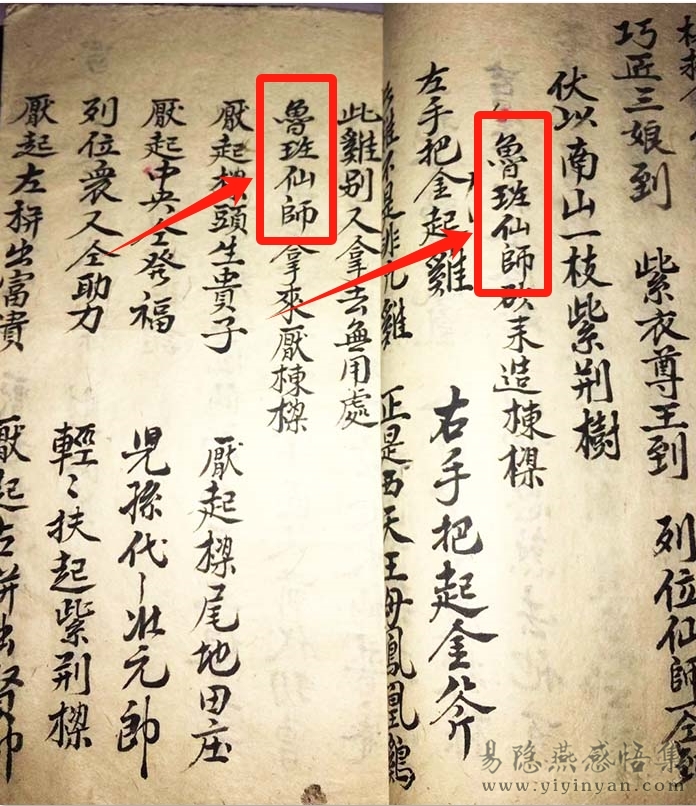 巧匠三娘到 紫衣尊王到 列位仙師仝到
伏以南山一枝紫荆樹
魯班仙師砍来造棟樑
左手把金起雞 右手把起金斧
正是西天王母鳳凰鷄
此雞别人拿去無用處
魯班仙師拿來厭棟樑
厭起樑頭生貴子 厭起樑尾地田庄
厭起中央仝發福 児孫代〻状元帥
列位衆人仝助力 輕〻扶起紫荆樑
厭起左
易隐燕感悟集
www.yiyinyan.com